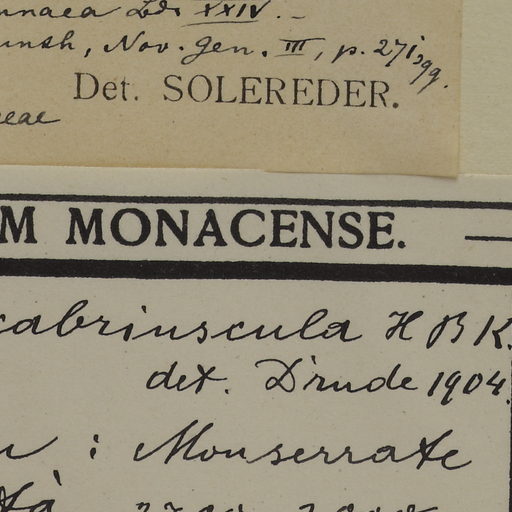 unnaea Ldr XXIV.
unth, Nov. Gen. III, p. 271, 299.
Det. SOLEREDER.
eae
M MONACENSE.
cabriuscula H B K.
det. Drude 1904.
: Monserrate
tà